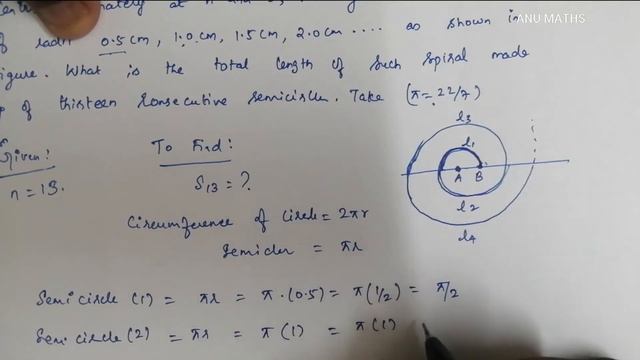 ANU MATHS
of radii 0.5cm, 1.0cm, 1.5cm, 2.0cm .... as shown in
figure. What is the total length of such spiral made
of thirteen consecutive semicircles. Take (π = 22/7)
Given: To Find:
n = 13. S13 = ?
l3
l1
A B
l2
l4
Circumference of Circle = 2πr
Semicircle = πr
Semicircle (1) = πr = π.(0.5) = π(1/2) = π/2
Semicircle (2) = πr = π(1) = π(1)